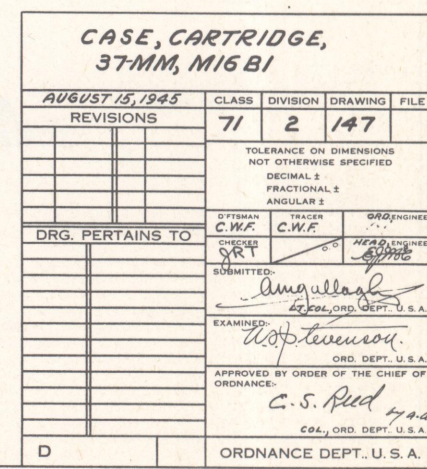 CASE, CARTRIDGE,
37-MM, M16B1
AUGUST 15, 1945
REVISIONS
DRG. PERTAINS TO
D
CLASS DIVISION DRAWING FILE
71 2 147
TOLERANCE ON DIMENSIONS
NOT OTHERWISE SPECIFIED
DECIMAL ±
FRACTIONAL ±
ANGULAR ±
D'FTSMAN TRACER ORD. ENGINEER
C.W.F. C.W.F.
CHECKER HEAD, ENGINEER
JRT
SUBMITTED:-
LT. COL., ORD. DEPT., U. S. A.
EXAMINED:-
Stevenson.
ORD. DEPT. U. S. A.
APPROVED BY ORDER OF THE CHIEF OF
ORDNANCE:-
C. S. Reed
COL., ORD. DEPT. U. S. A.
ORDNANCE DEPT., U. S. A.